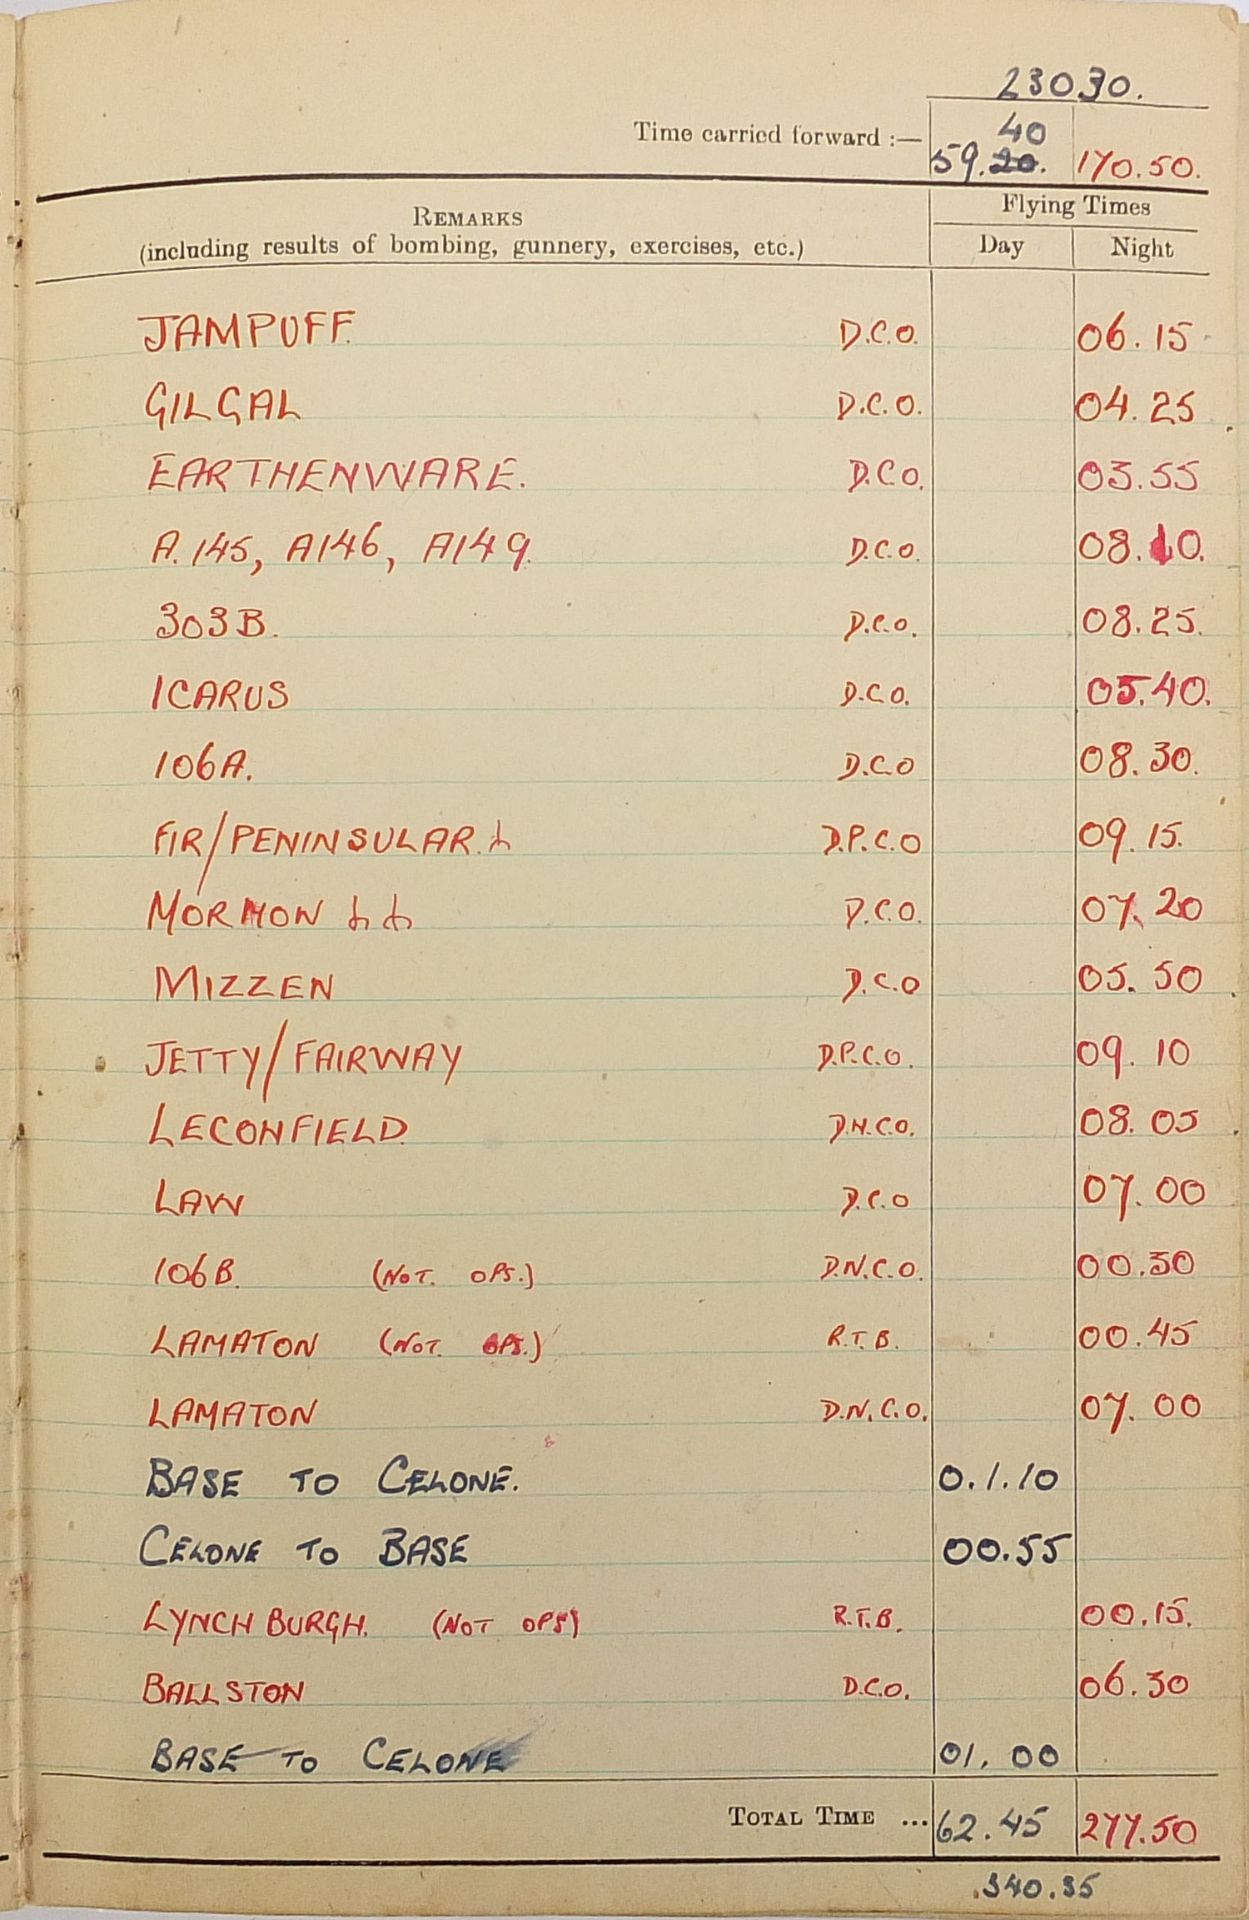 230 30.
Time carried forward :— 40
59.20. 170.50.
REMARKS Flying Times
(including results of bombing, gunnery, exercises, etc.) Day Night
JAMPUFF. D.C.O. 06.15
GILGAL D.C.O. 04.25
EARTHENWARE. D.C.O. 03.55
A.145, A146, A149. D.C.O. 08.10.
303B. D.C.O. 08.25.
ICARUS D.C.O. 05.40.
106A. D.C.O 08.30.
FIR/PENINSULAR. D.P.C.O 09.15.
MORMON D.C.O. 07.20
MIZZEN D.C.O 05.50
JETTY/FAIRWAY D.P.C.O. 09.10
LECONFIELD. D.N.C.O. 08.05
LAW D.C.O 07.00
106B. (NOT. OPS.) D.N.C.O. 00.30
LAMATON (NOT. OPS.) R.T.B. 00.45
LAMATON D.N.C.O. 07.00
BASE TO CELONE. 0.1.10
CELONE TO BASE 00.55
LYNCHBURGH. (NOT OPS) R.T.B. 00.15.
BALLSTON D.C.O. 06.30
BASE TO CELONE 01.00
TOTAL TIME ... 62.45 277.50
340.35